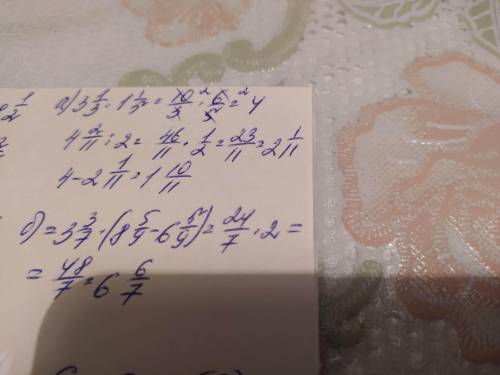 а) 3 1/3 · 1 1/5 = 10/3 · 6/5 = 4
4 2/11 : 2 = 46/11 · 1/2 = 23/11 = 2 1/11
4 - 2 1/11 = 1 10/11
б) = 3 3/7 · (8 5/9 - 6 5/9) = 24/7 · 2 =
= 48/7 = 6 6/7